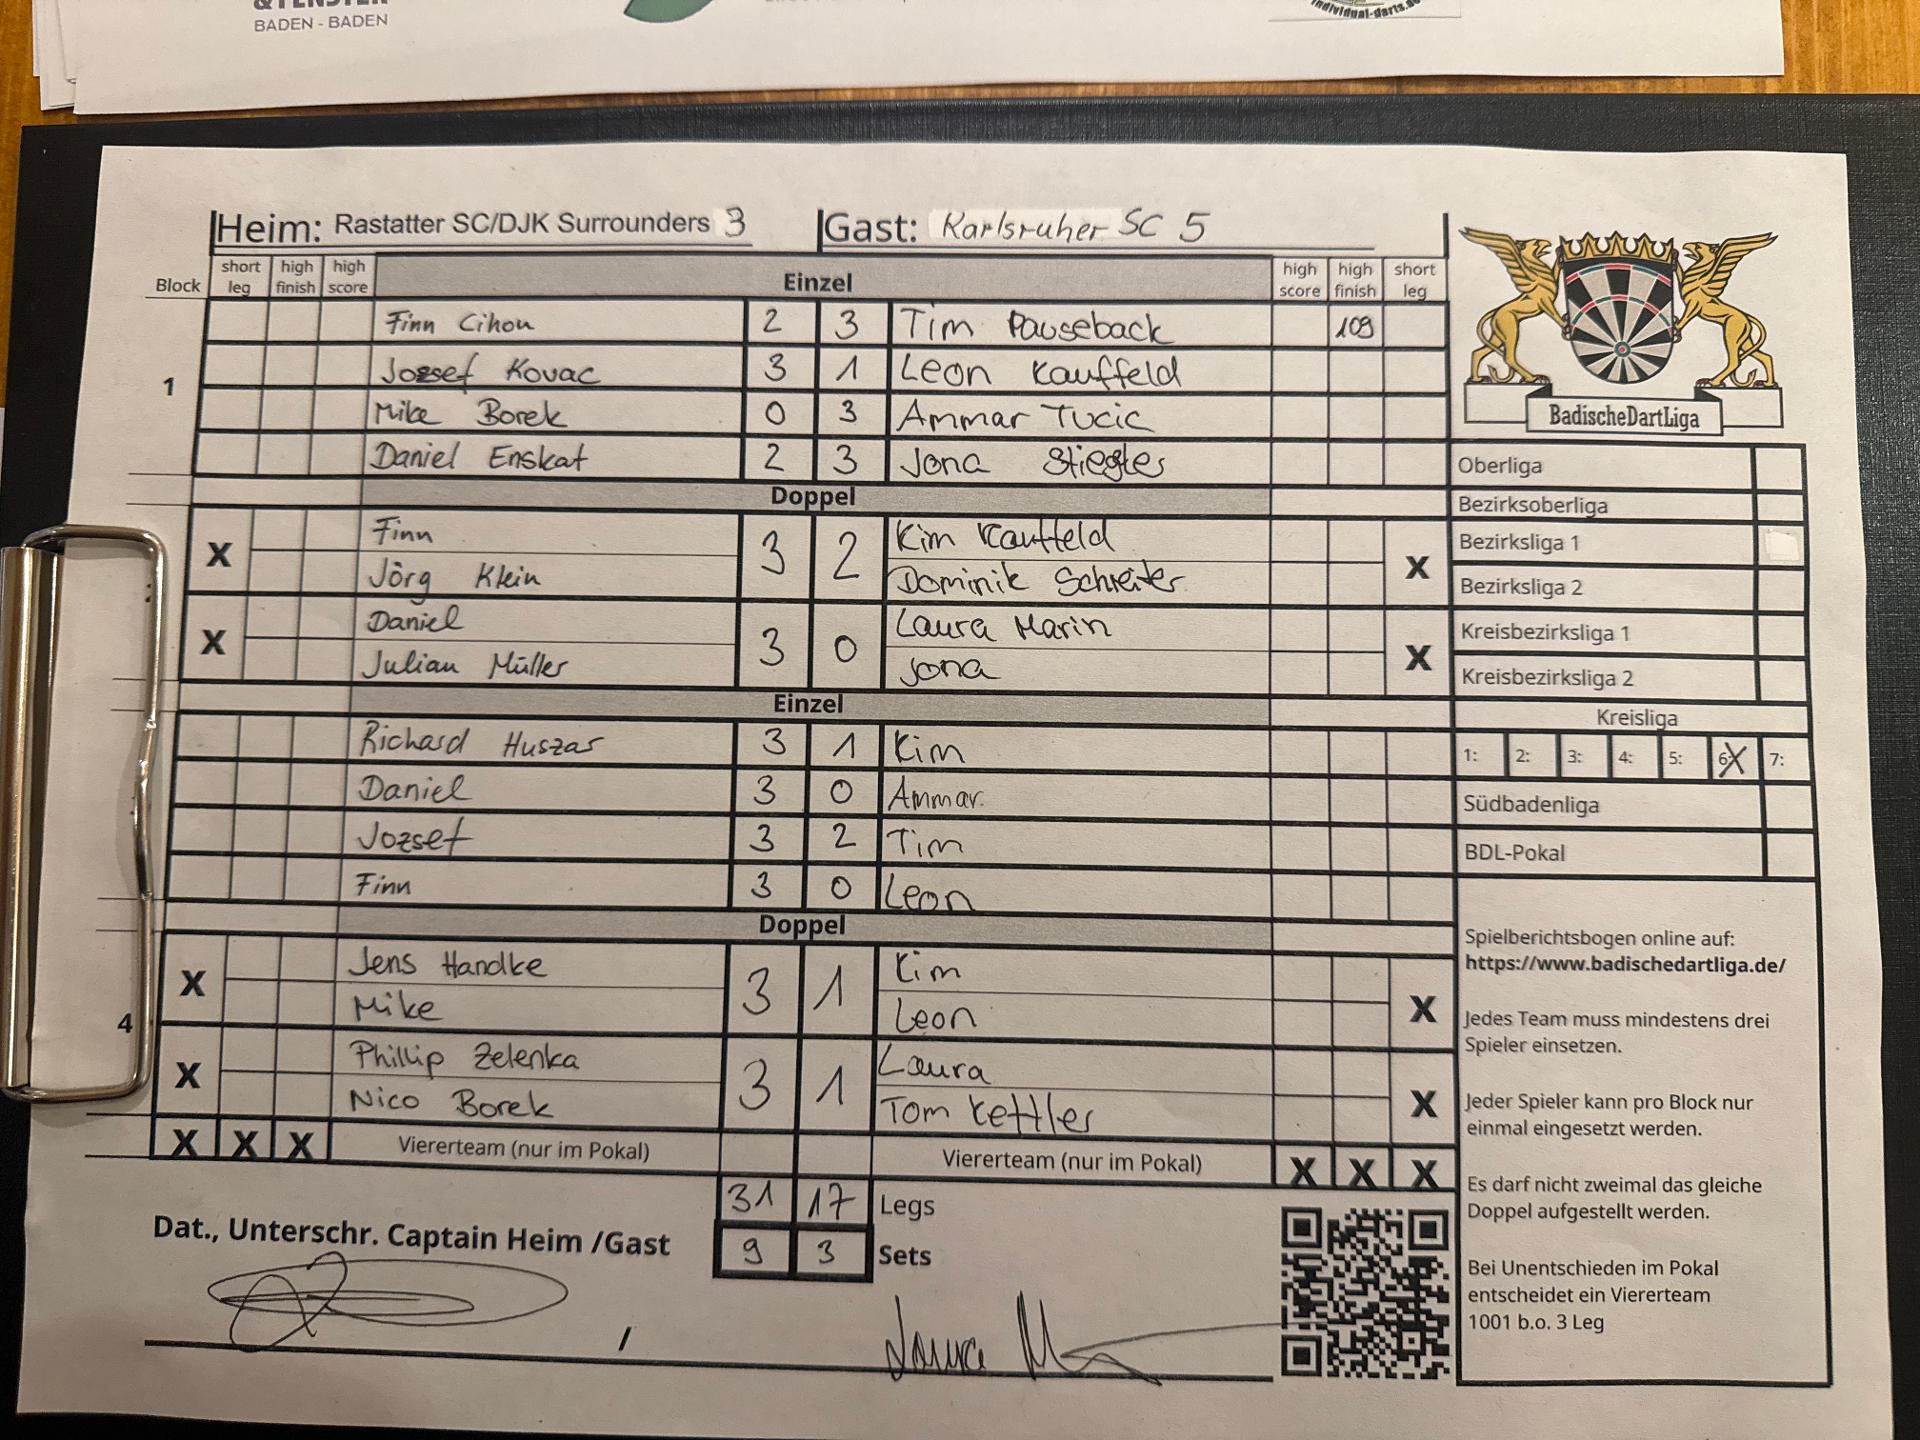 & FENSTER
BADEN - BADEN
individual-darts.de
Heim: Rastatter SC/DJK Surrounders 3 Gast: Karlsruher SC 5
Block short leg high finish high score Einzel high score high finish short leg
Finn Cihou 2 3 Tim Pauseback 109
1 Jozsef Kovac 3 1 Leon Kauffeld
Mike Borek 0 3 Ammar Tucic
BadischeDartLiga
Daniel Enskat 2 3 Jona Stiegler
Oberliga
Doppel
Bezirksoberliga
X Finn 3 2 Kim Kauffeld X
Jörg Klein Dominik Schreiter
Bezirksliga 1
Bezirksliga 2
X Daniel 3 0 Laura Marin X
Julian Müller Jona
Kreisbezirksliga 1
Kreisbezirksliga 2
Einzel
Kreisliga
Richard Huszar 3 1 Kim
1: 2: 3: 4: 5: 6: X 7:
Daniel 3 0 Ammar
Südbadenliga
Jozsef 3 2 Tim
BDL-Pokal
Finn 3 0 Leon
Doppel
X Jens Handke 3 1 Kim X
Mike Leon
4
X Phillip Zelenka 3 1 Laura X
Nico Borek Tom Kettler
X X X Viererteam (nur im Pokal) Viererteam (nur im Pokal) X X X
31 17 Legs
9 3 Sets
Dat., Unterschr. Captain Heim /Gast
/
Laura
Spielberichtsbogen online auf:
https://www.badischedartliga.de/
Jedes Team muss mindestens drei
Spieler einsetzen.
Jeder Spieler kann pro Block nur
einmal eingesetzt werden.
Es darf nicht zweimal das gleiche
Doppel aufgestellt werden.
Bei Unentschieden im Pokal
entscheidet ein Viererteam
1001 b.o. 3 Leg